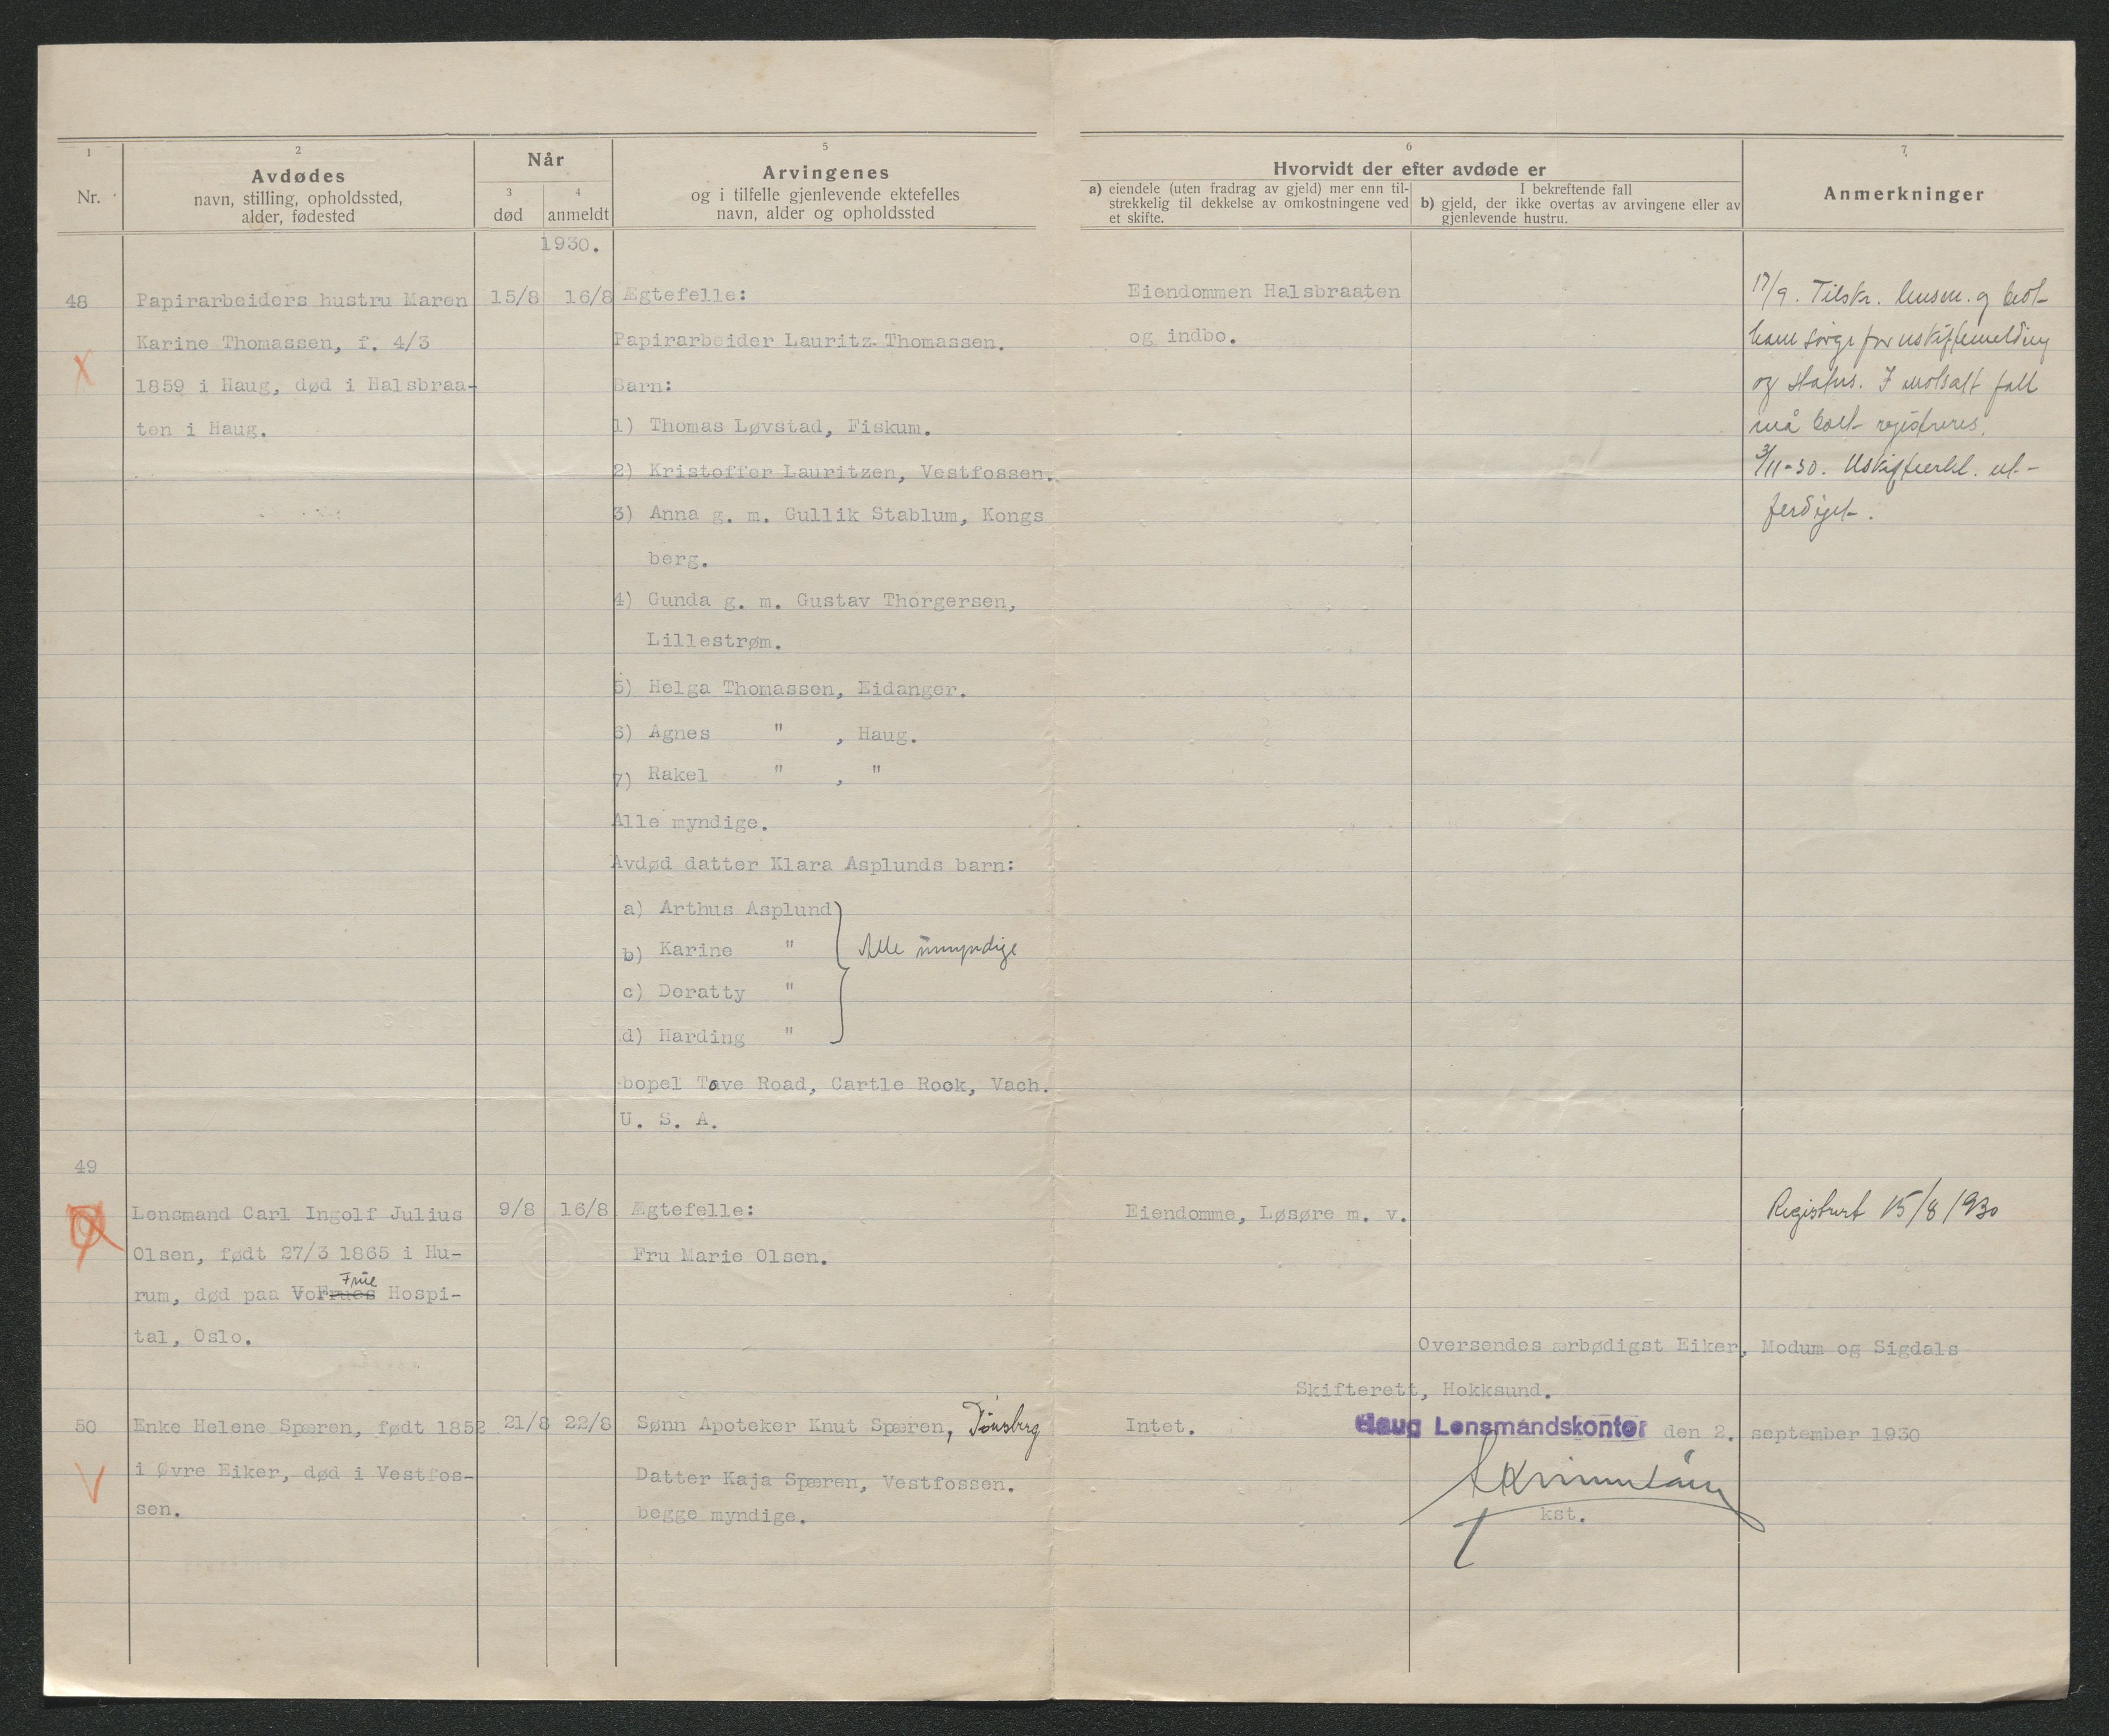 1
Nr.
2
Avdødes
navn, stilling, opholdssted,
alder, fødested
Når
3
død
4
anmeldt
5
Arvingenes
og i tilfelle gjenlevende ektefelles
navn, alder og opholdssted
6
Hvorvidt der efter avdøde er
a) eiendele (uten fradrag av gjeld) mer enn til-
strekkelig til dekkelse av omkostningene ved
et skifte.
I bekreftende fall
b) gjeld, der ikke overtas av arvingene eller av
gjenlevende hustru.
7
Anmerkninger
1930.
48
Papirarbeiders hustru Maren
Karine Thomassen, f. 4/3
1859 i Haug, død i Halsbraa-
ten i Haug.
15/8 16/8
Ægtefelle:
Papirarbeider Lauritz Thomassen.
Barn:
1) Thomas Løvstad, Fiskum.
2) Kristoffer Lauritzen, Vestfossen.
3) Anna g. m. Gullik Stablum, Kongs
berg.
4) Gunda g. m. Gustav Thorgersen,
Lillestrøm.
5) Helga Thomassen, Eidanger.
6) Agnes " , Haug.
7) Rakel " , "
Alle myndige.
Avdød datter Klara Asplunds barn:
a) Arthus Asplund
b) Karine "
c) Doratty "
d) Harding "
Alle umyndige
bopel Tove Road, Cartle Rock, Vach.
U. S. A.
Eiendommen Halsbraaten
og indbo.
17/9. Tilskr. lensm. og bedt
ham sørge for uskiftemelding
og status. I motsatt fall
må boet registreres.
3/11-30. Uskifteerkl. ut-
ferdiget.
49
Lensmand Carl Ingolf Julius
Olsen, født 27/3 1865 i Hu-
rum, død paa Vor Frue Hospi-
tal, Oslo.
9/8 16/8
Ægtefelle:
Fru Marie Olsen.
Eiendomme, Løsøre m. v.
Registrert 15/8 1930
50
Enke Helene Spæren, født 1852
i Øvre Eiker, død i Vestfos-
sen.
21/8 22/8
Sønn Apoteker Knut Spæren, Tønsberg
Datter Kaja Spæren, Vestfossen.
begge myndige.
Intet.
Oversendes ærbødigst Eiker, Modum og Sigdals
Skifterett, Hokksund.
Haug Lensmandskontor den 2. september 1930
kst.